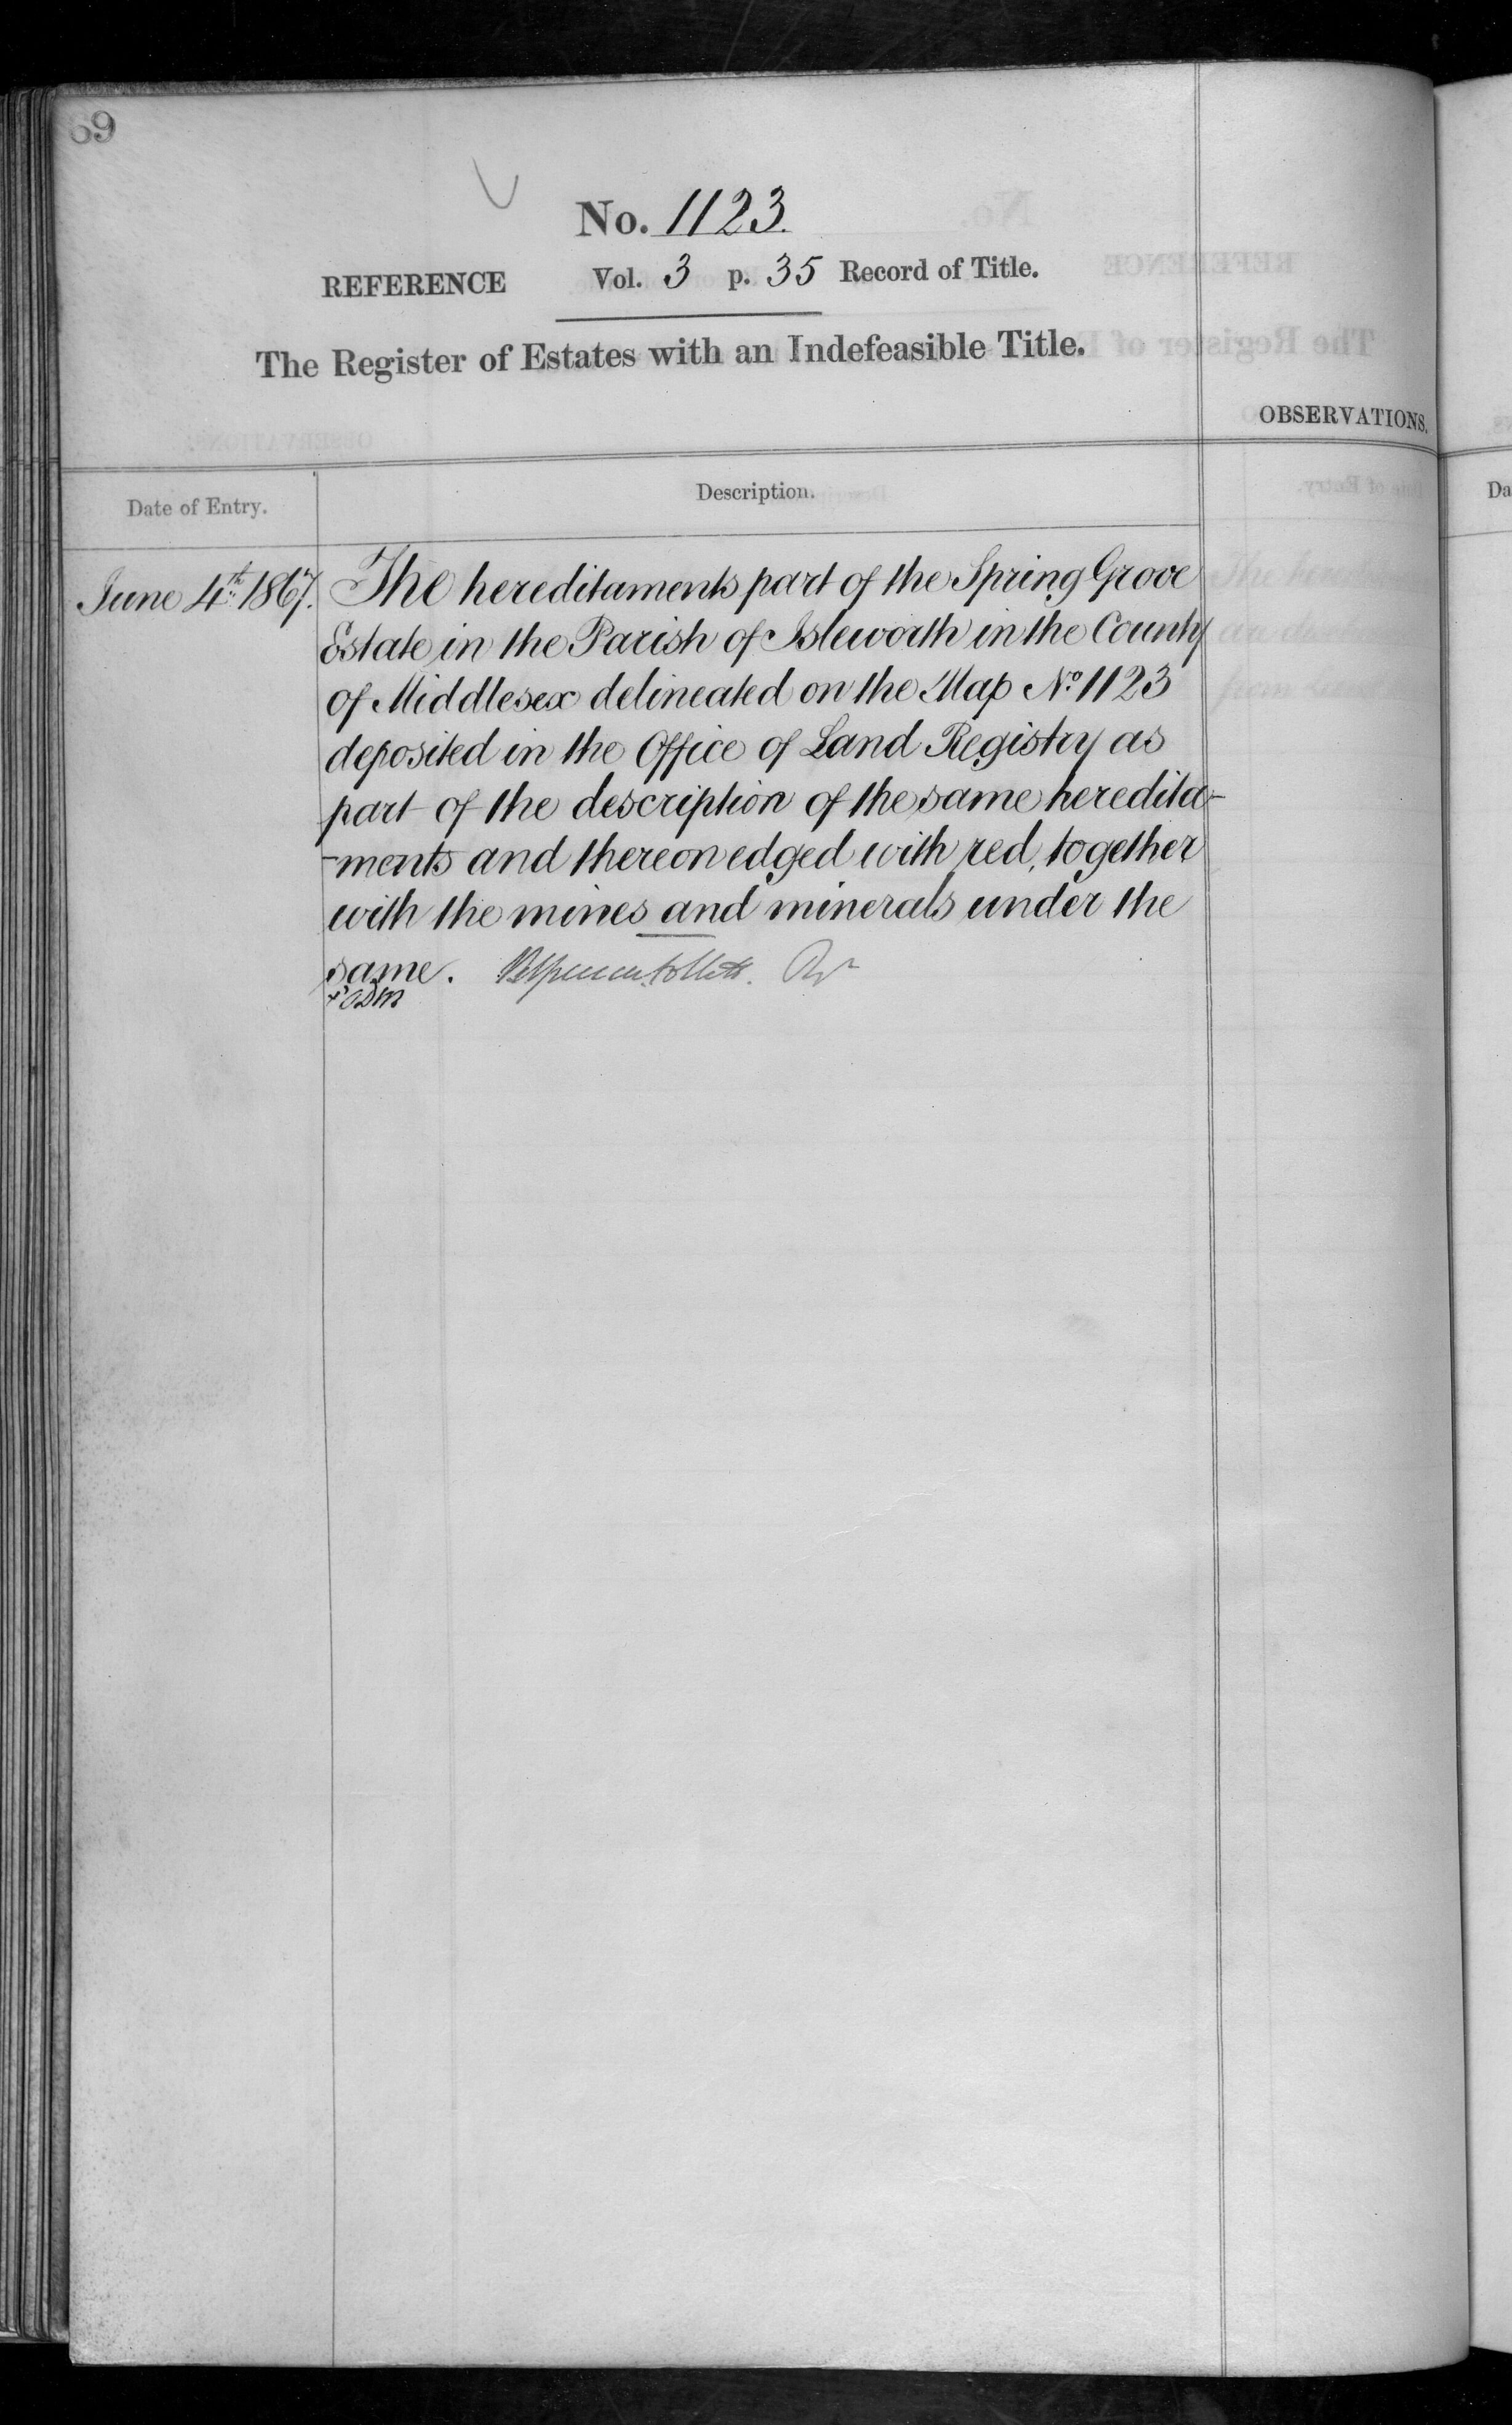 69
No. 1123.
REFERENCE Vol. 3 p. 35 Record of Title.
The Register of Estates with an Indefeasible Title.
OBSERVATIONS.
Date of Entry.
Description.
Da
June 4th 1867.
The hereditaments part of the Spring Grove
Estate in the Parish of Isleworth in the County
of Middlesex delineated on the Map No. 1123
deposited in the Office of Land Registry as
part of the description of the same heredita-
-ments and thereon edged with red, together
with the mines and minerals under the
same.